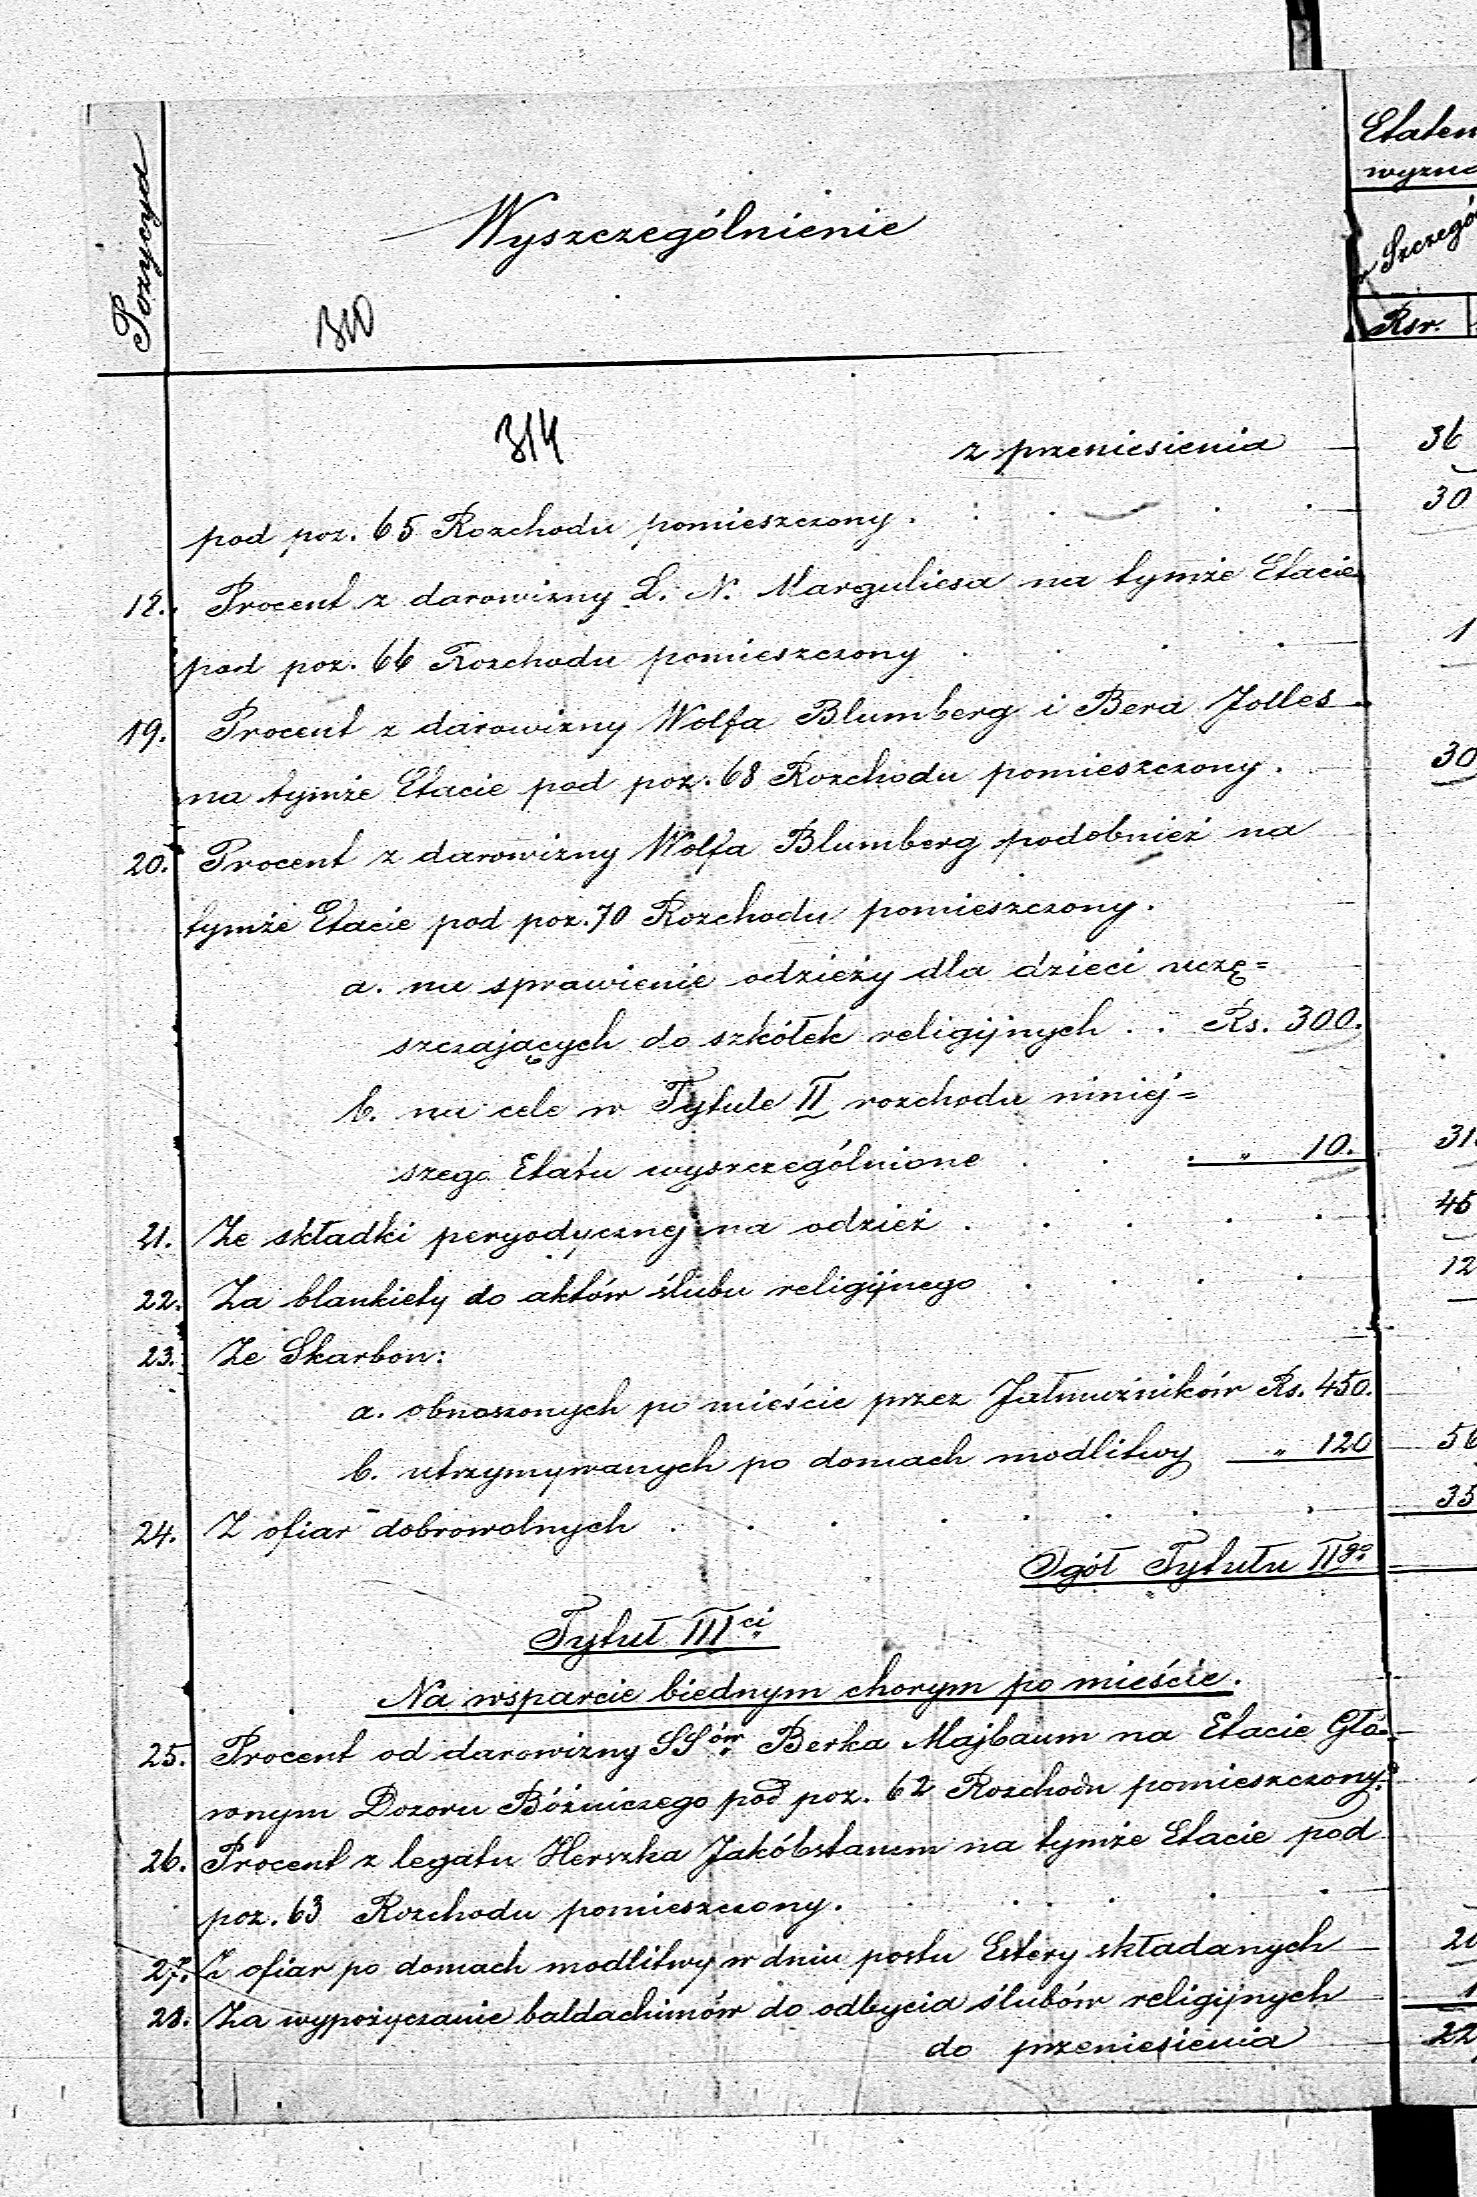 Pozycya
Wyszczególnienie
Etatem
wyzna
Szczegó
Rsr.
310
314
z przeniesienia 36
pod poz. 65 Rozchodu pomieszczony . 30
18. Procent z darowizny L. N. Marguliesa na tymże Etacie
pod poz. 66 Rozchodu pomieszczony . 1
19. Procent z darowizny Wolfa Blumberg i Bera Jolles
na tymże Etacie pod poz. 68 Rozchodu pomieszczony. 30
20. Procent z darowizny Wolfa Blumberg podobnież na
tymże Etacie pod poz. 70 Rozchodu pomieszczony.
a. na sprawienie odzieży dla dzieci uczę=
szczających do szkółek religijnych . . Rs. 300.
b. na cele w Tytule II rozchodu niniej=
szego Etatu wyszczególnione . . . „ 10. 31
21. Ze składki peryodycznej na odzież . . . . . 45
22. Za blankiety do aktów ślubu religijnego . . . . 12
23. Ze Skarbon:
a. obnoszonych po mieście przez Jałmużników Rs. 450.
b. utrzymywanych po domach modlitwy „ 120 56
24. Z ofiar dobrowolnych . . . . . . . 35
Ogół Tytułu IIgo
Tytuł IIIci
Na wsparcie biednym chorym po mieście.
25. Procent od darowizny SSów Berka Majbaum na Etacie Głó=
wnym Dozoru Bóżniczego pod poz. 62 Rozchodu pomieszczony.
26. Procent z legatu Herszka Jakóbstamm na tymże Etacie pod
poz. 63 Rozchodu pomieszczony. . . . . .
27. Z ofiar po domach modlitwy w dniu postu Estery składanych 20
28. Za wypożyczanie baldachimów do odbycia ślubów religijnych 1
do przeniesienia 22